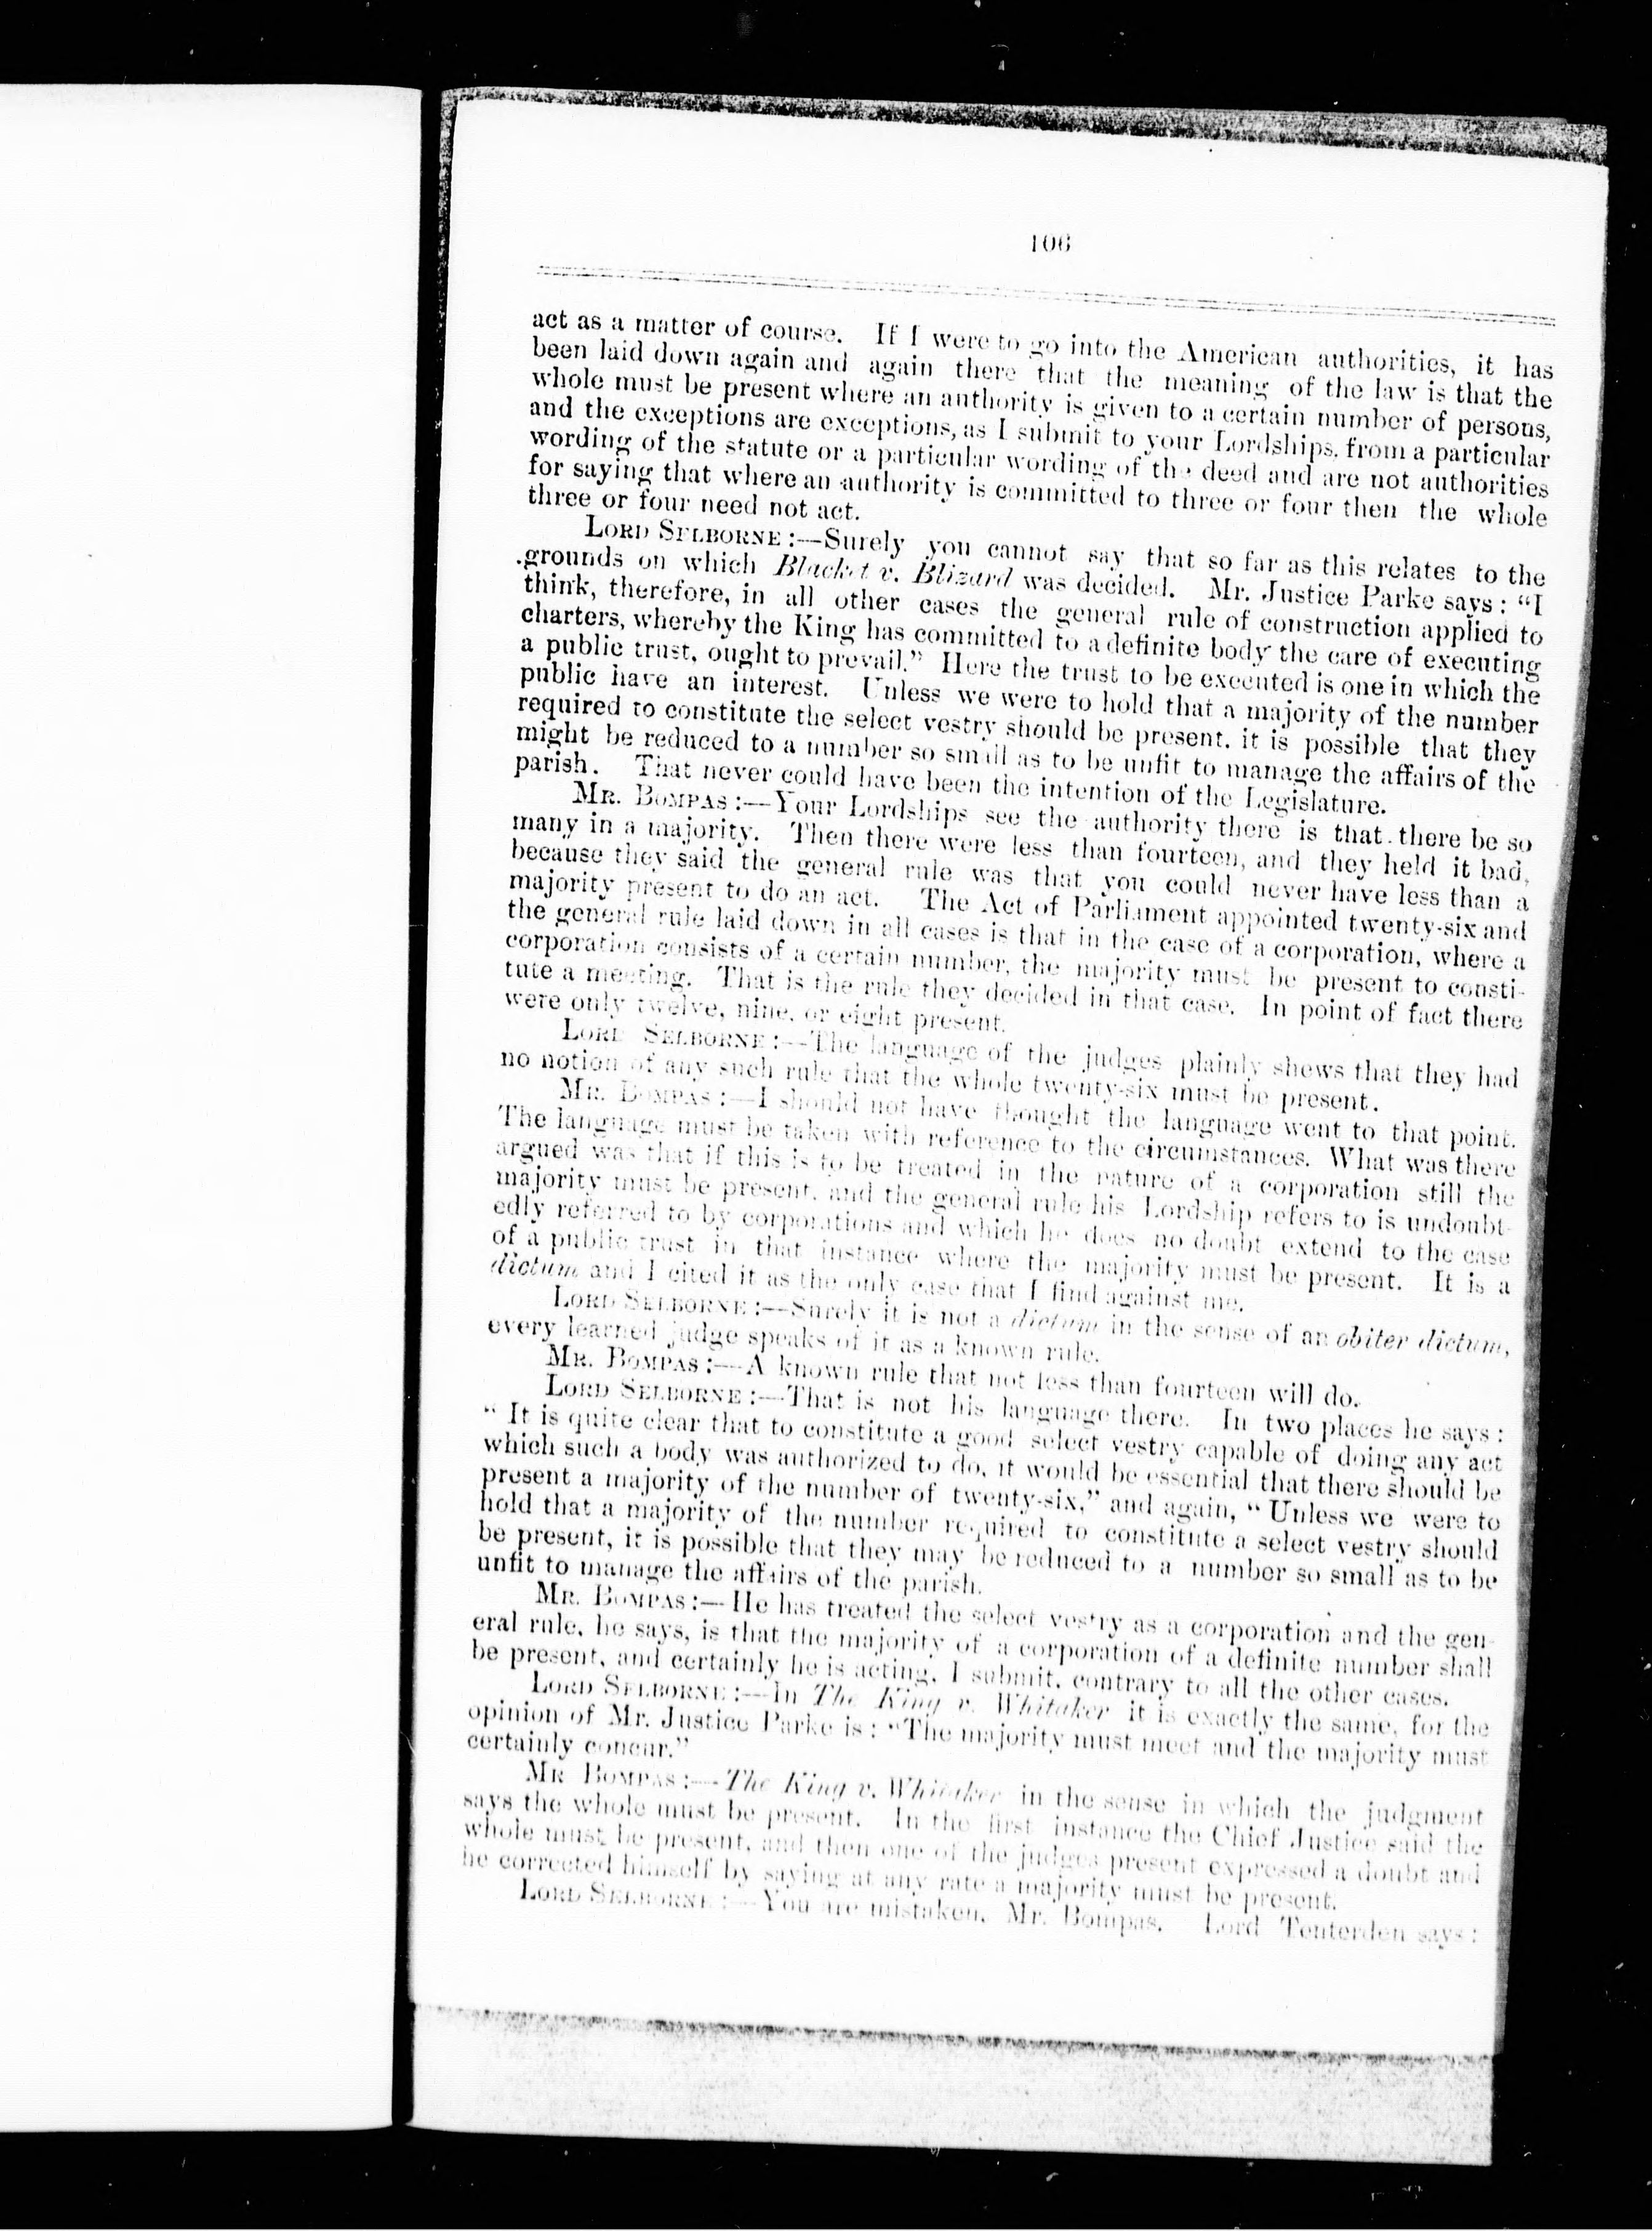 106
act as a matter of course. If I were to go into the American authorities, it has
been laid down again and again there that the meaning of the law is that the
whole must be present where an authority is given to a certain number of persons,
and the exceptions are exceptions, as I submit to your Lordships, from a particular
wording of the statute or a particular wording of the deed and are not authorities
for saying that where an authority is committed to three or four then the whole
three or four need not act.
LORD SELBORNE:—Surely you cannot say that so far as this relates to the
grounds on which Blacket v. Blizard was decided. Mr. Justice Parke says: "I
think, therefore, in all other cases the general rule of construction applied to
charters, whereby the King has committed to a definite body the care of executing
a public trust, ought to prevail." Here the trust to be executed is one in which the
public have an interest. Unless we were to hold that a majority of the number
required to constitute the select vestry should be present, it is possible that they
might be reduced to a number so small as to be unfit to manage the affairs of the
parish. That never could have been the intention of the Legislature.
MR. BOMPAS:—Your Lordships see the authority there is that there be so
many in a majority. Then there were less than fourteen, and they held it bad,
because they said the general rule was that you could never have less than a
majority present to do an act. The Act of Parliament appointed twenty-six and
the general rule laid down in all cases is that in the case of a corporation, where a
corporation consists of a certain number, the majority must be present to consti-
tute a meeting. That is the rule they decided in that case. In point of fact there
were only twelve, nine, or eight present.
LORD SELBORNE:—The language of the judges plainly shews that they had
no notion of any such rule that the whole twenty-six must be present.
MR. BOMPAS:—I should not have thought the language went to that point.
The language must be taken with reference to the circumstances. What was there
argued was that if this is to be treated in the nature of a corporation still the
majority must be present, and the general rule his Lordship refers to is undoubt-
edly referred to by corporations and which he does no doubt extend to the case
of a public trust in that instance where the majority must be present. It is a
dictum and I cited it as the only case that I find against me.
LORD SELBORNE:—Surely it is not a dictum in the sense of an obiter dictum,
every learned judge speaks of it as a known rule.
MR. BOMPAS:—A known rule that not less than fourteen will do.
LORD SELBORNE:—That is not his language there. In two places he says:
" It is quite clear that to constitute a good select vestry capable of doing any act
which such a body was authorized to do, it would be essential that there should be
present a majority of the number of twenty-six," and again, " Unless we were to
hold that a majority of the number required to constitute a select vestry should
be present, it is possible that they may be reduced to a number so small as to be
unfit to manage the affairs of the parish.
MR. BOMPAS:—He has treated the select vestry as a corporation and the gen-
eral rule, he says, is that the majority of a corporation of a definite number shall
be present, and certainly he is acting, I submit, contrary to all the other cases.
LORD SELBORNE:—In The King v. Whitaker it is exactly the same, for the
opinion of Mr. Justice Parke is: "The majority must meet and the majority must
certainly concur."
MR BOMPAS:—The King v. Whitaker in the sense in which the judgment
says the whole must be present. In the first instance the Chief Justice said the
whole must be present, and then one of the judges present expressed a doubt and
he corrected himself by saying at any rate a majority must be present.
LORD SELBORNE:—You are mistaken, Mr. Bompas. Lord Tenterden says: